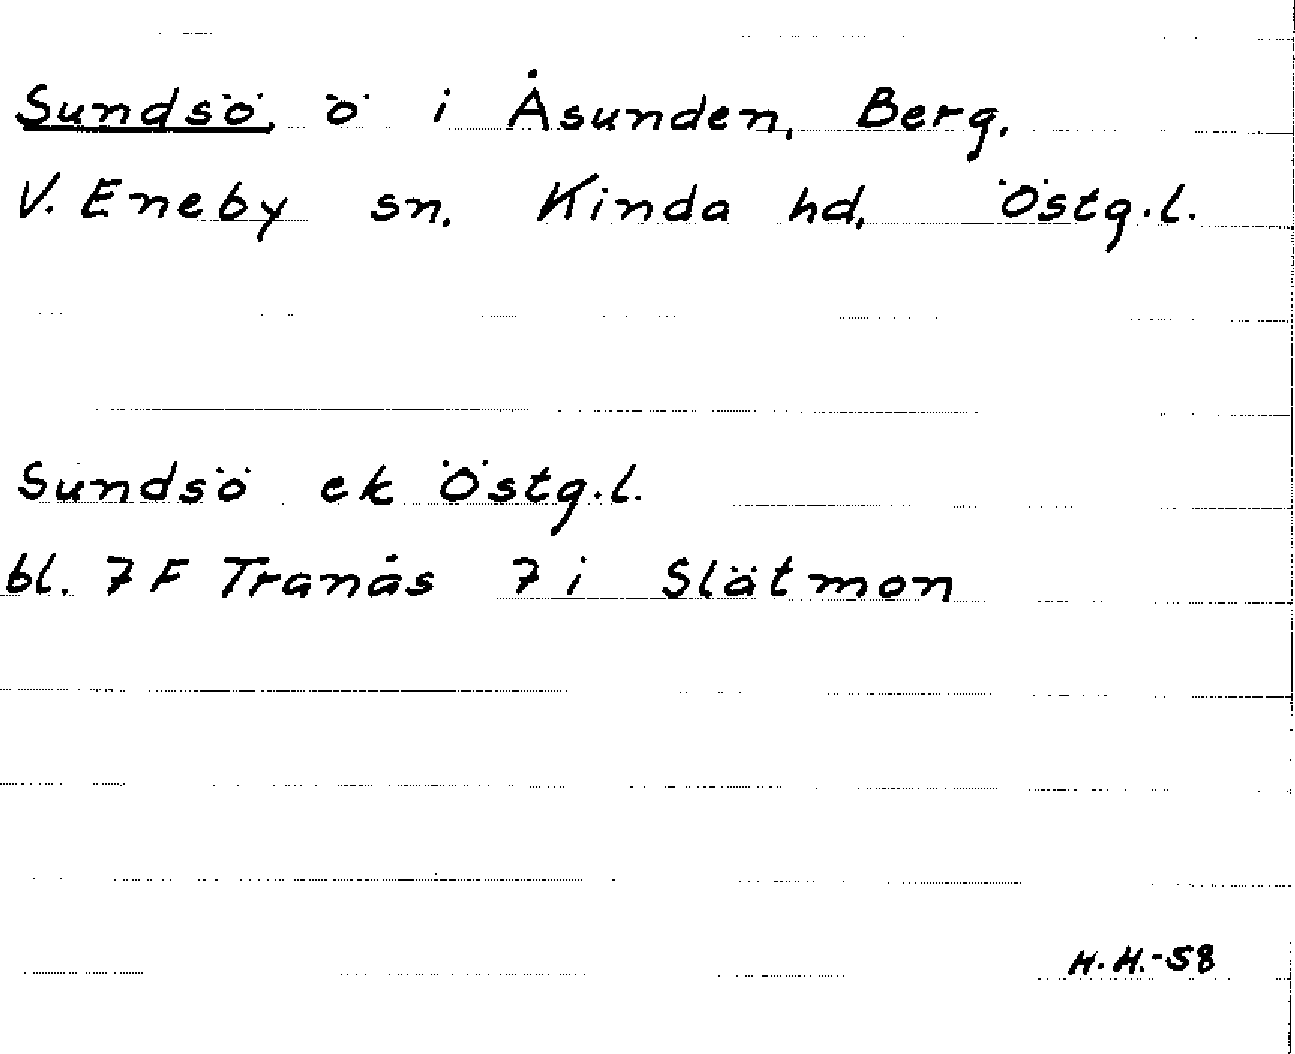 Sundsö, ö i Åsunden, Berg,
V. Eneby sn, Kinda hd, Östg.l.
Sundsö ek Östg.l.
bl. 7 F Tranås 7 i Slätmon
H.H.-58